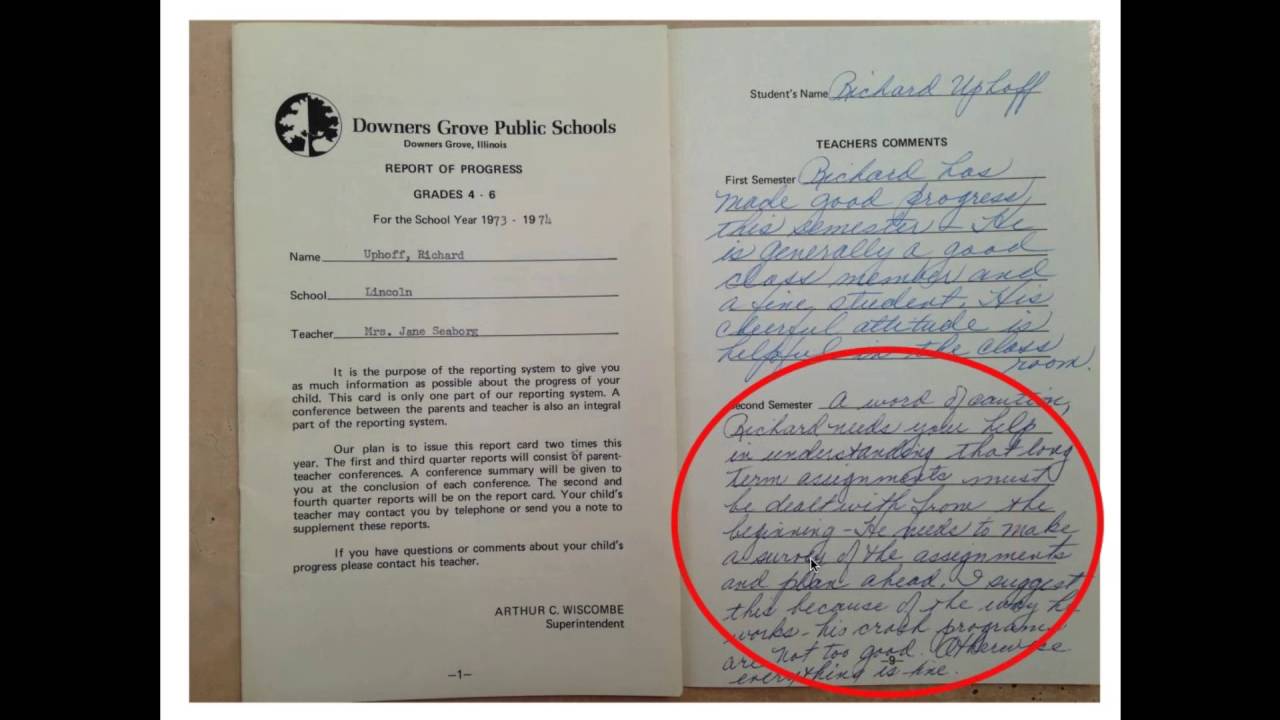 Downers Grove Public Schools
Downers Grove, Illinois
REPORT OF PROGRESS
GRADES 4 - 6
For the School Year 1973 - 1974
Name Uphoff, Richard
School Lincoln
Teacher Mrs. Jane Seaborg
It is the purpose of the reporting system to give you
as much information as possible about the progress of your
child. This card is only one part of our reporting system. A
conference between the parents and teacher is also an integral
part of the reporting system.
Our plan is to issue this report card two times this
year. The first and third quarter reports will consist of parent-
teacher conferences. A conference summary will be given to
you at the conclusion of each conference. The second and
fourth quarter reports will be on the report card. Your child's
teacher may contact you by telephone or send you a note to
supplement these reports.
If you have questions or comments about your child's
progress please contact his teacher.
ARTHUR C. WISCOMBE
Superintendent
—1—
Student's Name Richard Uphoff
TEACHERS COMMENTS
First Semester Richard has
made good progress
this semester. He
is generally a good
class member and
a fine student. His
cheerful attitude is
helpful in the class
room.
Second Semester A word of caution,
Richard needs your help
in understanding that long
term assignments must
be dealt with from the
beginning - He needs to make
a survey of the assignments
and plan ahead. I suggest
this because of the way he
works - his crash programs
are not too good. Otherwise
everything is fine.
—9—